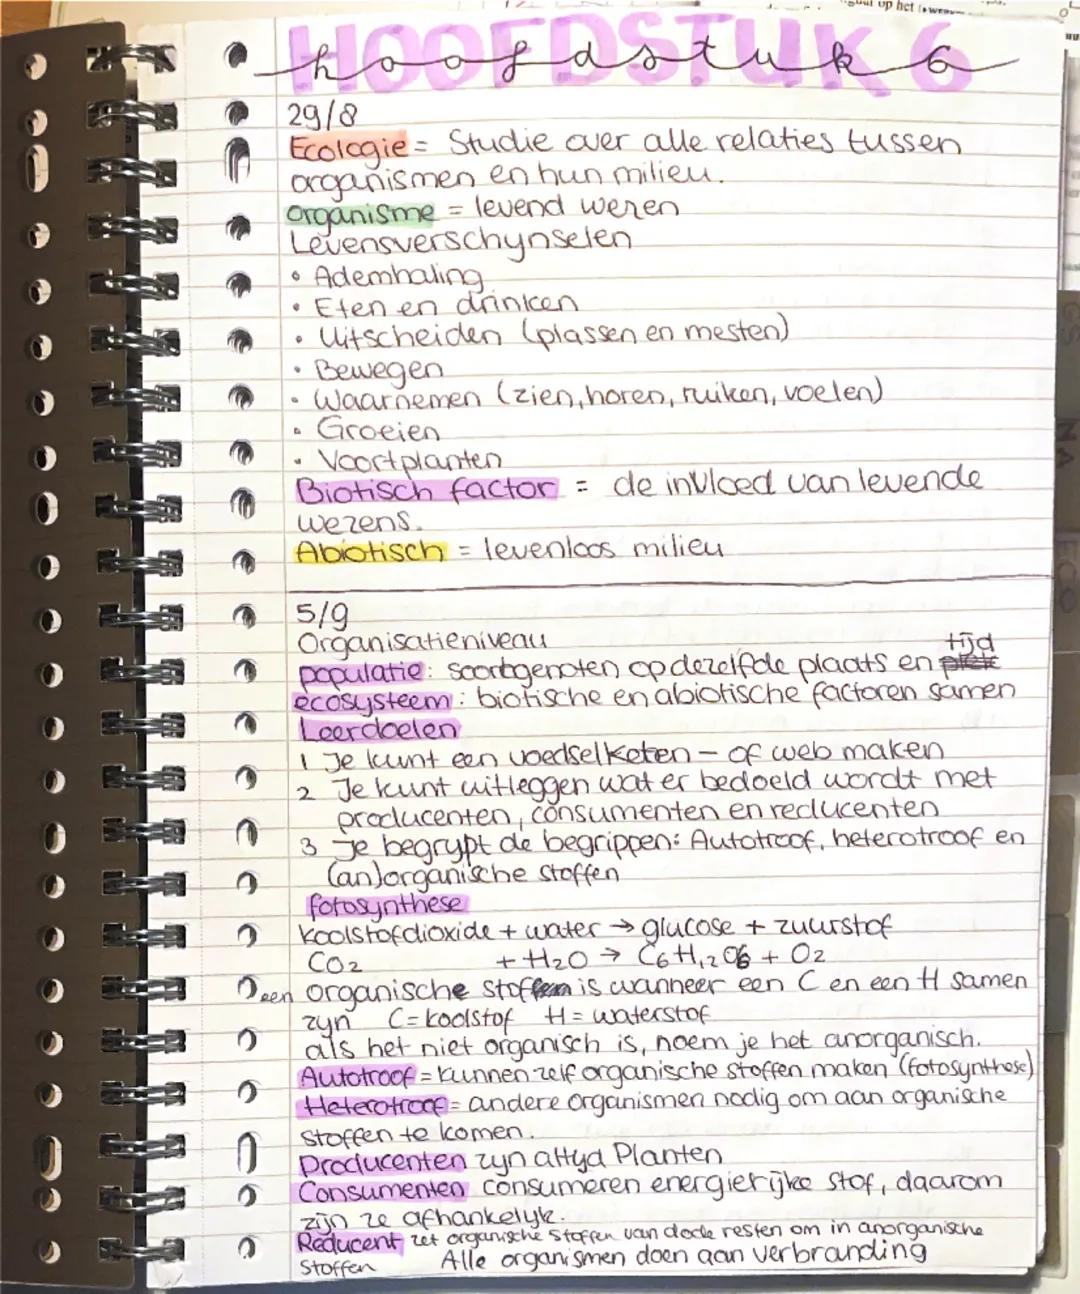 HOOFDSTUK 6
hoofdstuk 6
29/8
Ecologie = Studie over alle relaties tussen
organismen en hun milieu.
Organisme = levend wezen
Levensverschynselen
• Ademhaling
• Eten en drinken
• Uitscheiden (plassen en mesten)
• Bewegen
• Waarnemen (zien, horen, ruiken, voelen)
• Groeien
• Voortplanten
Biotisch factor = de invloed van levende
wezens.
Abiotisch = levenloos milieu
5/9
Organisatieniveau
populatie: soortgenoten op dezelfde plaats en tijd
ecosysteem: biotische en abiotische factoren samen
Leerdoelen
1 Je kunt een voedselketen - of web maken
2 Je kunt uitleggen wat er bedoeld wordt met
producenten, consumenten en reducenten
3 Je begrypt de begrippen: Autotroof, heterotroof en
(an)organische stoffen
fotosynthese
koolstofdioxide + water → glucose + zuurstof
CO2 + H2O → C6H12O6 + O2
een organische stof is wanneer een C en een H samen
zyn C = koolstof H = waterstof
als het niet organisch is, noem je het anorganisch.
Autotroof = kunnen zelf organische stoffen maken (fotosynthese)
Heterotroof = andere organismen nodig om aan organische
stoffen te komen.
Producenten zyn altyd Planten
Consumenten consumeren energierijke stof, daarom
zijn ze afhankelyk.
Reducent zet organische stoffen van dode resten om in anorganische
stoffen Alle organismen doen aan verbranding